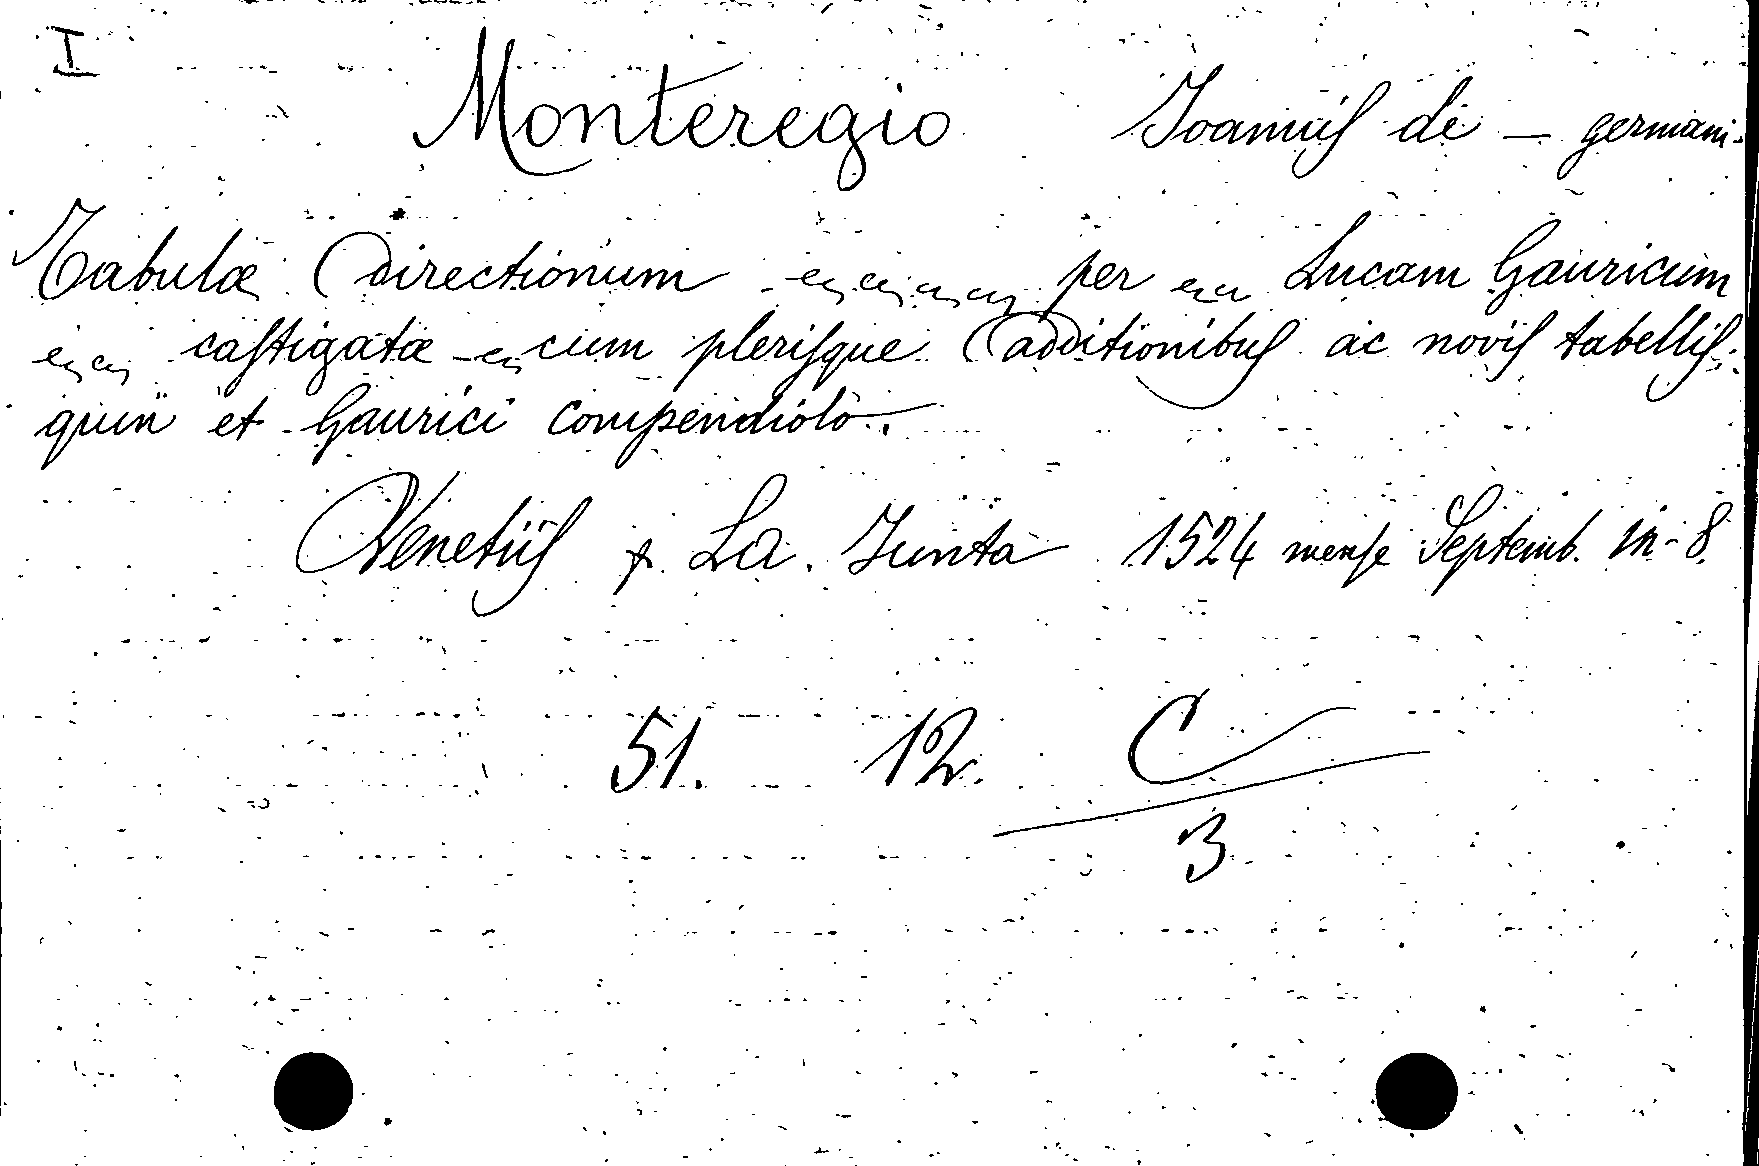 I
Monteregio Joannis de — germani.
Tabulæ Directionum per Lucam Gauricum
castigatæ cum plerisque additionibus ac novis tabellis:
quin et Gaurici compendiolo.
Venetiis p. La. Junta 1524 mense Septemb. in-8.
51. 12. C
3